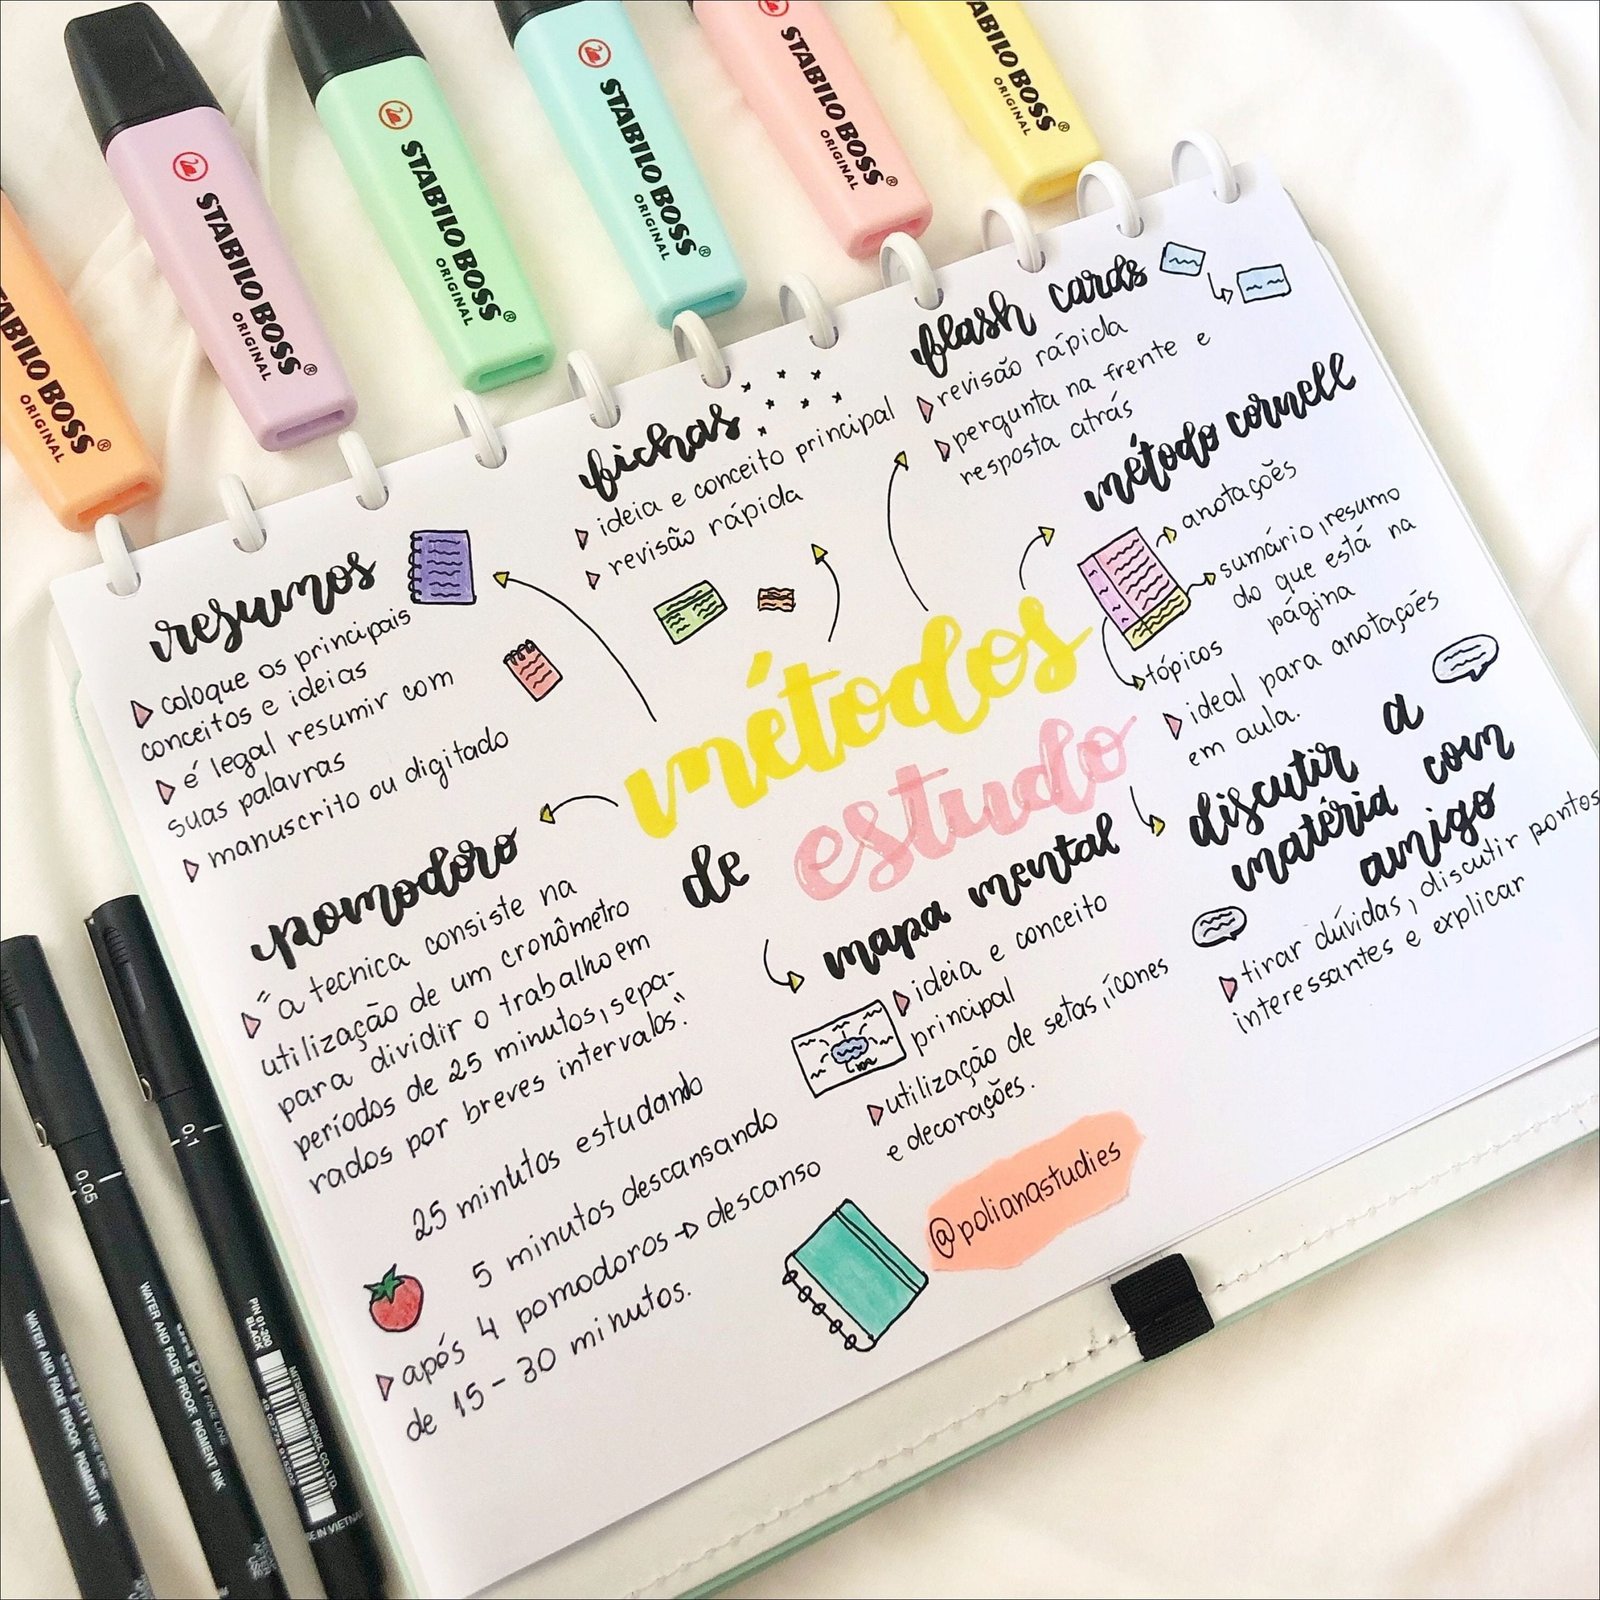 STABILO BOSS
ORIGINAL
STABILO BOSS®
ORIGINAL
STABILO BOSS®
ORIGINAL
STABILO BOSS®
ORIGINAL
STABILO BOSS®
ORIGINAL
STABILO BOSS®
ORIGINAL
métodos
de estudo
resumos
coloque os principais
conceitos e ideias
é legal resumir com
suas palavras
manuscrito ou digitado
fichas
ideia e conceito principal
revisão rápida
flash cards
revisão rápida
pergunta na frente e
resposta atrás
método cornell
anotações
sumário, resumo
do que está na
página
tópicos
ideal para anotações
em aula.
discutir a
matéria com
amigo
tirar dúvidas, discutir pontos
interessantes e explicar
mapa mental
ideia e conceito
principal
utilização de setas, ícones
e decorações.
pomodoro
"a tecnica consiste na
utilização de um cronômetro
para dividir o trabalho em
períodos de 25 minutos, sepa-
rados por breves intervalos."
25 minutos estudando
5 minutos descansando
após 4 pomodoros → descanso
de 15 - 30 minutos.
@polianastudies
WATER AND FADE PROOF PIGMENT INK
0.05
PIN FINE LINE
WATER AND FADE PROOF, PIGMENT INK
0.1
PIN 01-200
BLACK
MITSUBISHI PENCIL CO., LTD.